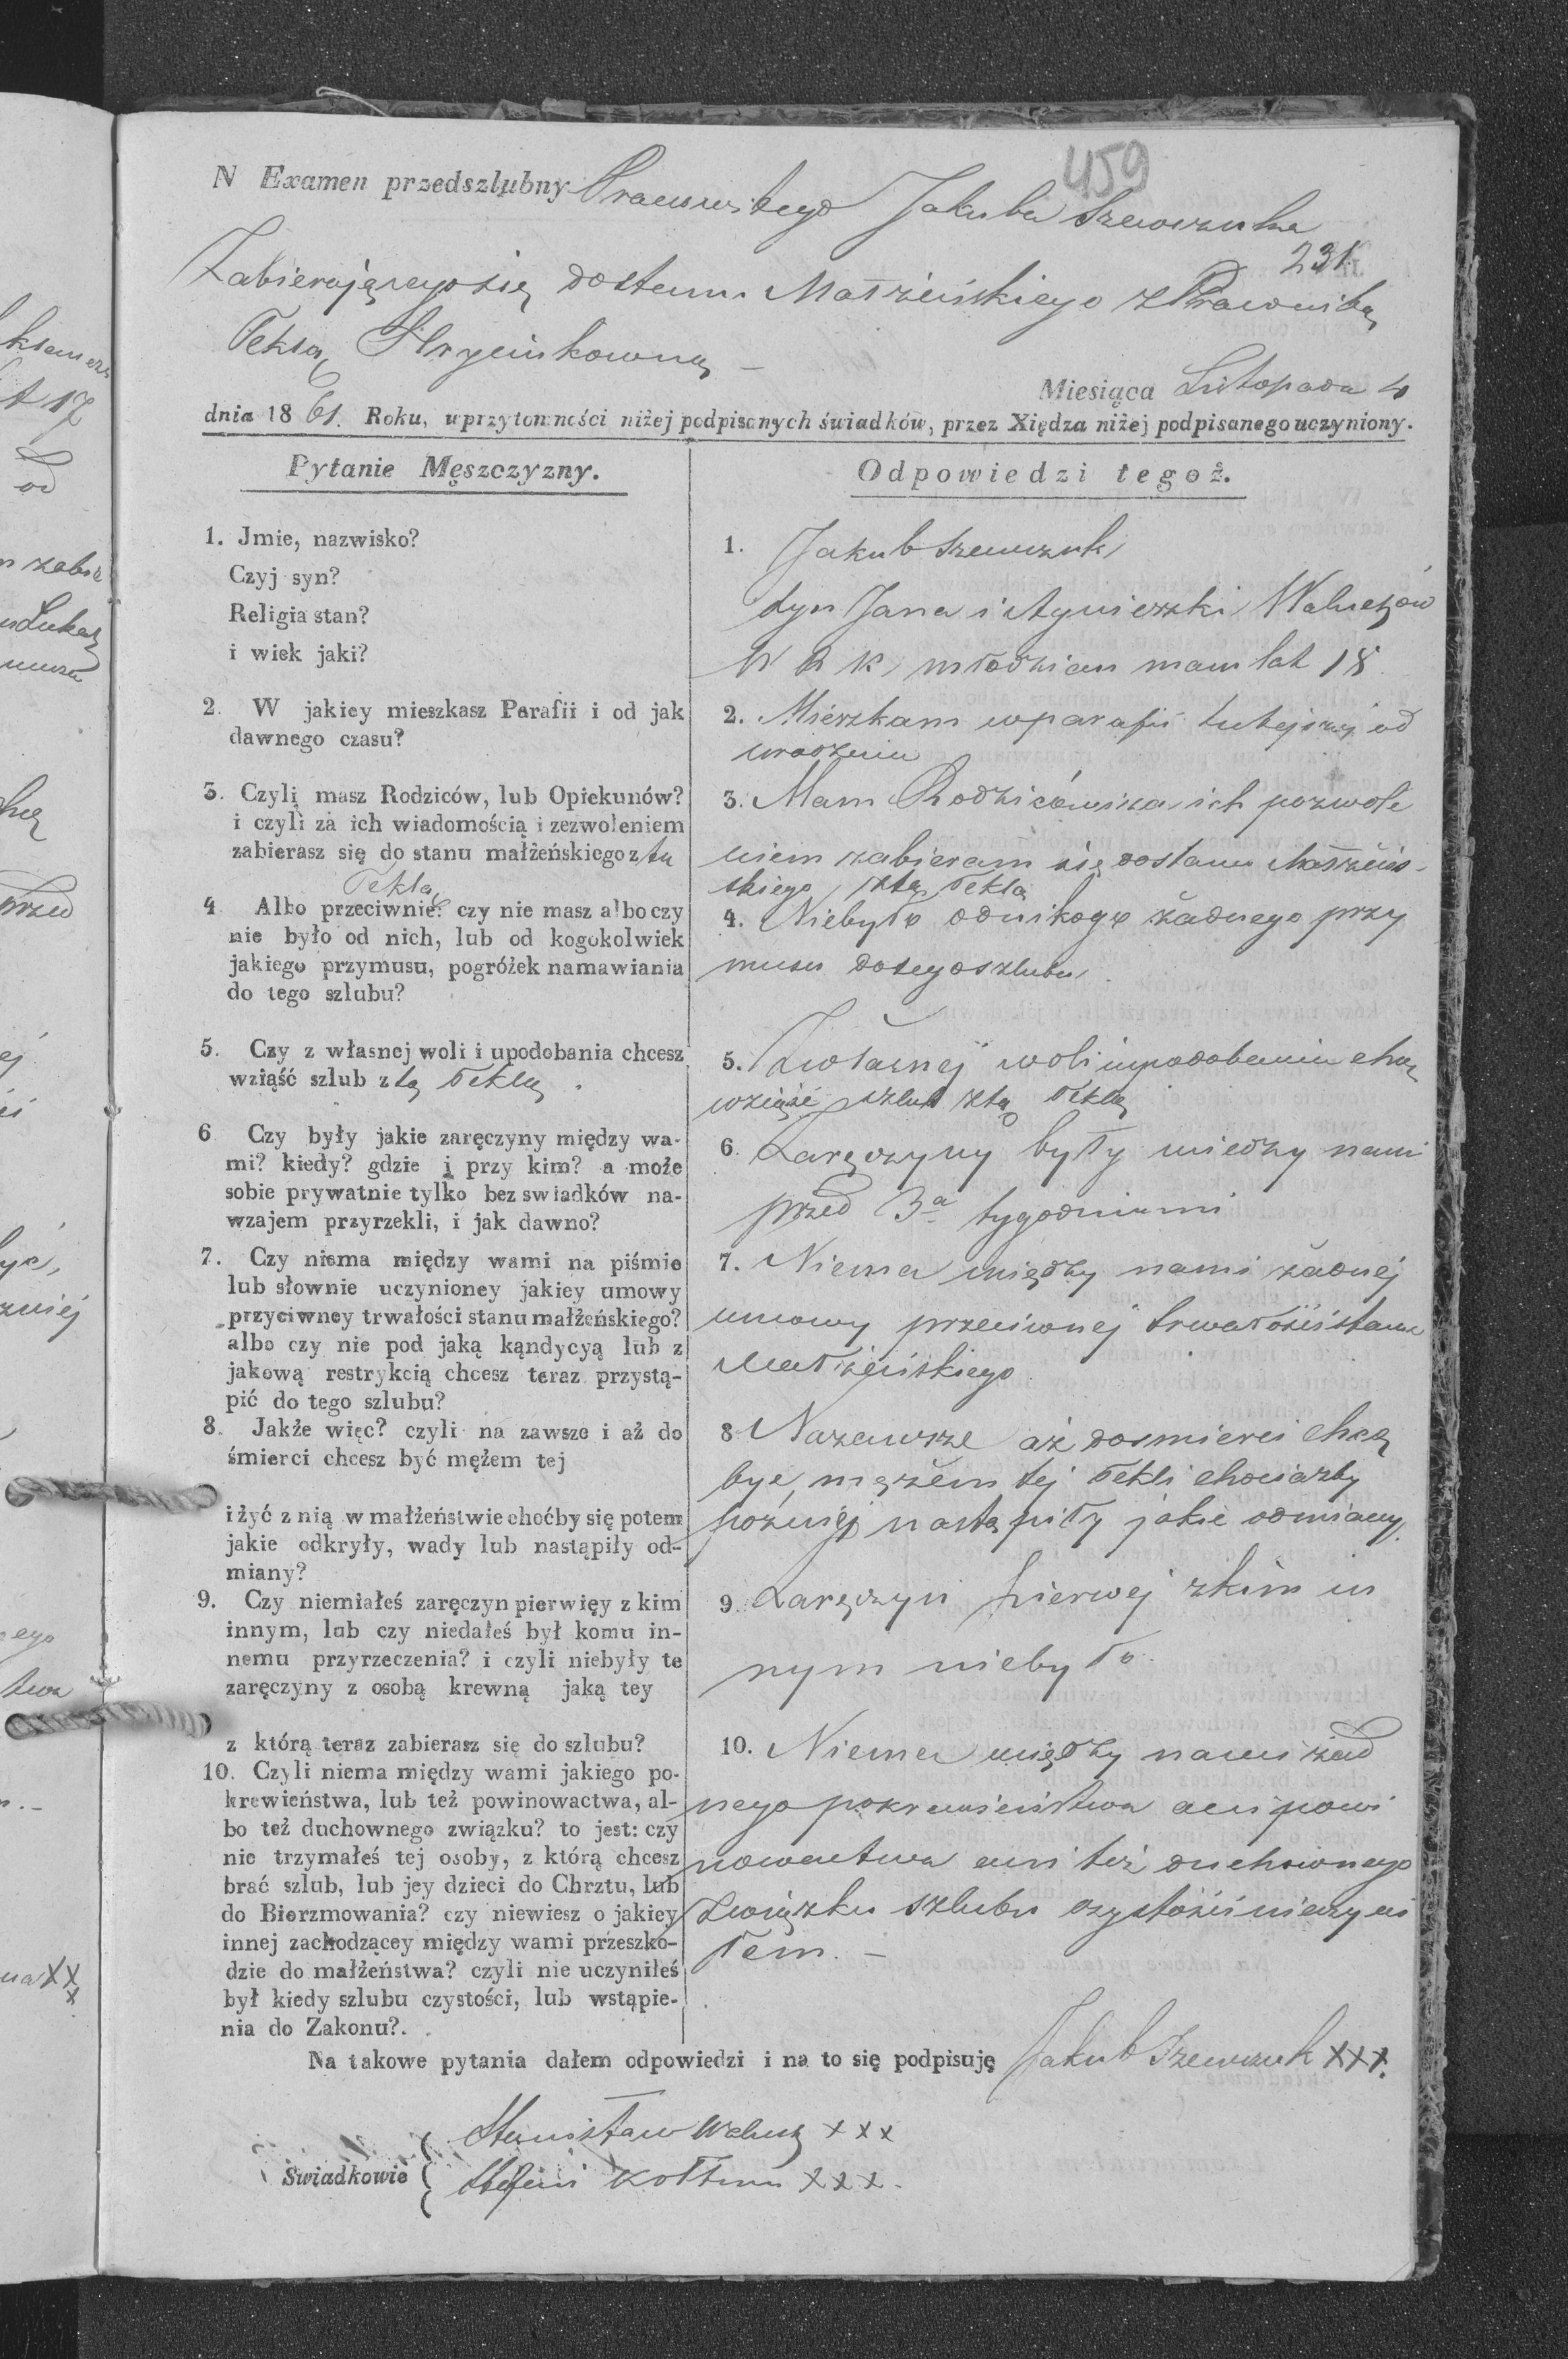 459
N Examen przedszlubny Pracowitego Jakuba Szewczuka
231.
Zabierającego się do stanu Małżeńskiego z Pracowitą
Teklą Hryciukowną —
Miesiąca Listopada 4
dnia 1861. Roku, w przytomności niżej podpisanych świadków, przez Xiędza niżej podpisanego uczyniony.
Pytanie Męszczyzny.
1. Jmie, nazwisko?
Czyj syn?
Religia stan?
i wiek jaki?
2. W jakiey mieszkasz Parafii i od jak
dawnego czasu?
3. Czyli masz Rodziców, lub Opiekunów?
i czyli za ich wiadomością i zezwoleniem
zabierasz się do stanu małżeńskiego z tą
Teklą
4 Albo przeciwnie? czy nie masz albo czy
nie było od nich, lub od kogokolwiek
jakiego przymusu, pogróżek namawiania
do tego szlubu?
5. Czy z własnej woli i upodobania chcesz
wziąść szlub z tą Teklą.
6 Czy były jakie zaręczyny między wa-
mi? kiedy? gdzie i przy kim? a może
sobie prywatnie tylko bez swiadków na-
wzajem przyrzekli, i jak dawno?
7. Czy niema między wami na piśmie
lub słownie uczynioney jakiey umowy
przyciwney trwałości stanu małżeńskiego?
albo czy nie pod jaką kąndycyą lub z
jakową restrykcią chcesz teraz przystą-
pić do tego szlubu?
8. Jakże więc? czyli na zawsze i aż do
śmierci chcesz być mężem tej
i żyć z nią w małżeństwie choćby się potem
jakie odkryły, wady lub nastąpiły od-
miany?
9. Czy niemiałeś zaręczyn pierwięy z kim
innym, lub czy niedałeś był komu in-
nemu przyrzeczenia? i czyli niebyły te
zaręczyny z osobą krewną jaką tey
z którą teraz zabierasz się do szlubu?
10. Czyli niema między wami jakiego po-
krewieństwa, lub też powinowactwa, al-
bo też duchownego związku? to jest: czy
nie trzymałeś tej osoby, z którą chcesz
brać szlub, lub jey dzieci do Chrztu, lub
do Bierzmowania? czy niewiesz o jakiey
innej zachodzącey między wami przeszko-
dzie do małżeństwa? czyli nie uczyniłeś
był kiedy szlubu czystości, lub wstąpie-
nia do Zakonu?.
Odpowiedzi tegoż.
1. Jakub Szewczuk
syn Jana i Agnieszki Waluczów
W R K, młodzian mam lat 18
2. Mieszkam w parafii tutejszej od
urodzenia
3. Mam Rodziców i za ich pozwole
niem zabieram się do stanu Małżeńs-
skiego z tą Teklą
4. Niebyło od nikogo żadnego przy
musu do tego szlubu
5. Z własnej woli i upodobania chcę
wziąść szlub z tą Teklą
6. Zaręczyny były miedzy nami
przed 3a tygodniami
7. Niema między nami żadnej
umowy przeciwnej trwałości stanu
Małżeńskiego
8 Nazawsze aż do smierci chcę
być mężem tej Tekli chociażby
poźniej nastąpiły jakie odmiany.
9 Zaręczyn pierwej z kim in
nym niebyło
10. Niema między nami żad
nego pokrewieństwa ani powi
nowactwa ani też duchownego
Związku szlubu czystości nieczyni
łem. —
Na takowe pytania dałem odpowiedzi i na to się podpisuję Jakub Szewczuk XXX.
Swiadkowie
Stanisław Walucz XXX
Stefan Kołtun XXX.